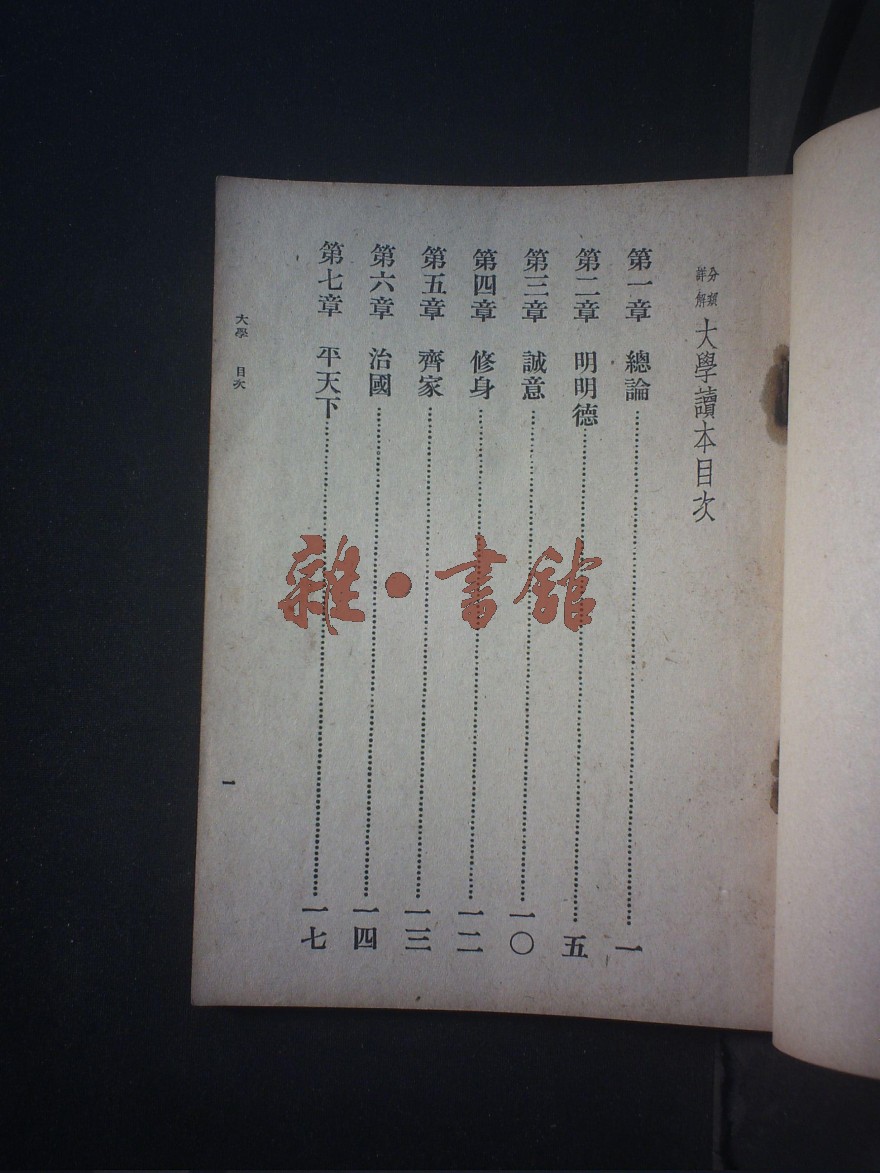 分類詳解 大學讀本目次
第一章 總論……一
第二章 明明德……五
第三章 誠意……一〇
第四章 修身……一二
第五章 齊家……一三
第六章 治國……一四
第七章 平天下……一七
大學 目次 一
雜·書館